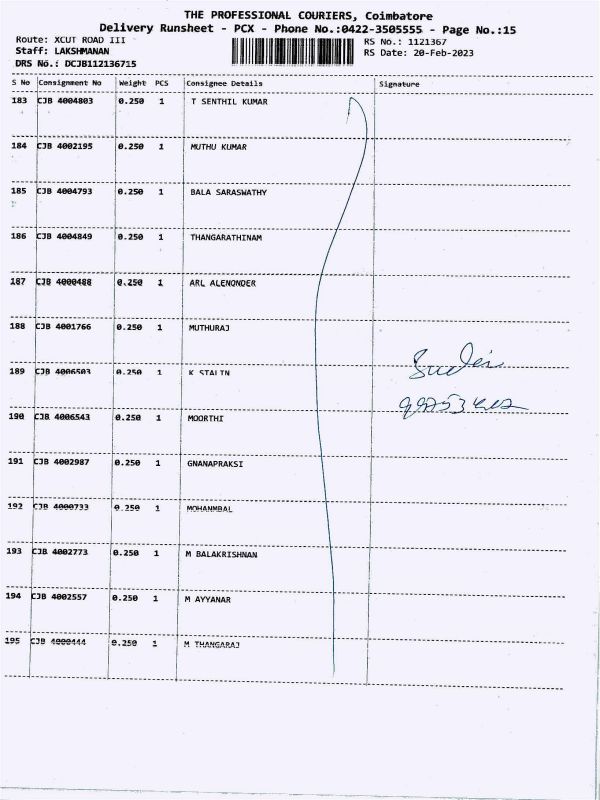 THE PROFESSIONAL COURIERS, Coimbatore
Delivery Runsheet - PCX - Phone No.:0422-3505555 - Page No.:15
Route: XCUT ROAD III RS No.: 1121367
Staff: LAKSHMANAN RS Date: 20-Feb-2023
DRS No.: DCJB112136715
S No Consignment No Weight PCS Consignee Details Signature
183 CJB 4004803 0.250 1 T SENTHIL KUMAR
184 CJB 4002195 0.250 1 MUTHU KUMAR
185 CJB 4004793 0.250 1 BALA SARASWATHY
186 CJB 4004849 0.250 1 THANGARATHINAM
187 CJB 4000488 0.250 1 ARL ALENONDER
188 CJB 4001766 0.250 1 MUTHURAJ
189 CJB 4006503 0.250 1 K STALIN
190 CJB 4006543 0.250 1 MOORTHI
191 CJB 4002987 0.250 1 GNANAPRAKSI
192 CJB 4000733 0.250 1 MOHANMBAL
193 CJB 4002773 0.250 1 M BALAKRISHNAN
194 CJB 4002557 0.250 1 M AYYANAR
195 CJB 4000444 0.250 1 M THANGARAJ